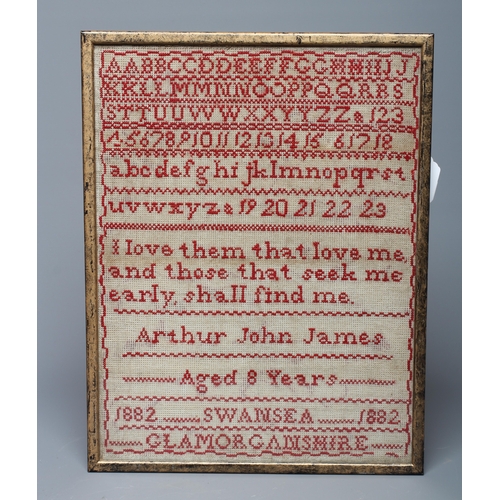 AABBCCDDEEFFGGHHIIJ
KKLLMMNNOOPPQQRRS
STTUUWWXXYYZZ&123
4567891011121314151617 18
abcdefghijklmnopqrst
uvwxyz& 19 20 21 22 23
I love them that love me,
and those that seek me
early, shall find me.
Arthur John James
Aged 8 Years
1882 SWANSEA 1882
GLAMORGANSHIRE